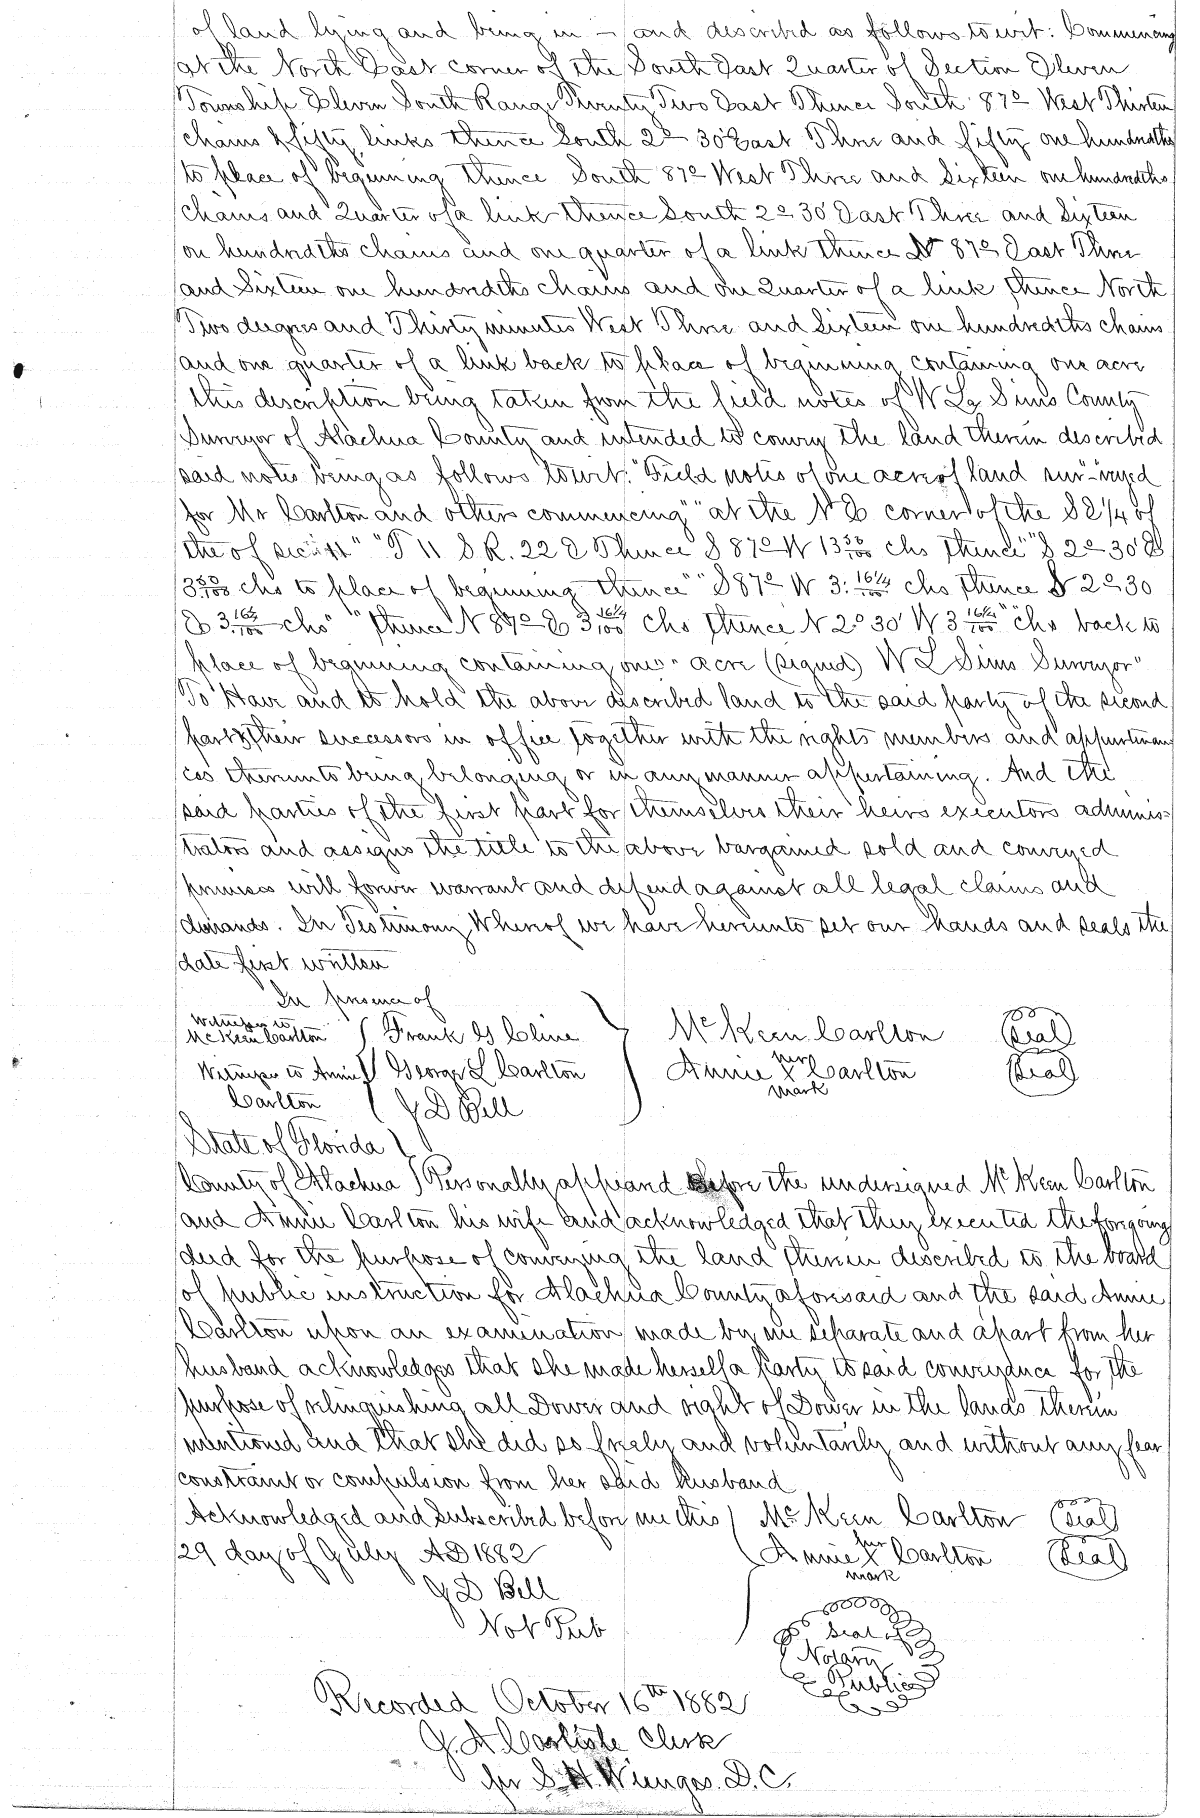 of land lying and being in — and described as follows to wit: Commencing
at the North East corner of the South East Quarter of Section Eleven
Township Eleven South Range Twenty Two East Thence South 87° West Thirteen
chains & fifty links thence South 2° 30' East Three and fifty one hundredths
to place of beginning thence South 87° West Three and Sixteen one hundredths
chains and Quarter of a link thence South 2° 30' East Three and Sixteen
on hundredths chains and one quarter of a link thence N 87° East Three
and Sixteen one hundredths chains and one Quarter of a link thence North
Two degrees and Thirty minutes West Three and Sixteen one hundredths chains
and one quarter of a link back to place of beginning containing one acre
this description being taken from the field notes of W L Sims County
Surveyor of Alachua County and intended to convey the land therein described
said notes being as follows to wit: "Field notes of one acre of land sur-veyed
for Mr Carlton and others commencing" "at the N E corner of the S E 1/4 of
the of sec 11" "T 11 S R. 22 E Thence S 87° W 13 50/100 chs thence" "S 2° 30' E
3 50/100 chs to place of beginning thence" "S 87° W 3: 16 1/4/100 chs thence S 2° 30
E 3 16 1/4/100 chs" "thence N 87° E 3 16 1/4/100 chs thence N 2° 30' W 3 16 1/4/100 "chs back to
place of beginning containing one" acre (signed) W L Sims Surveyor"
To Have and to hold the above described land to the said party of the second
part & their successors in office together with the rights members and appurtenan
ces thereunto being belonging or in any manner appertaining. And the
said parties of the first part for themselves their heirs executors adminis-
trators and assigns the title to the above bargained sold and conveyed
premises will forever warrant and defend against all legal claims and
demands. In Testimony Whereof we have hereunto set our hands and seals the
date first written
In presence of
Witnesses to McKeen Carlton Frank G Cline McKeen Carlton (Seal)
Witnesses to Annie Carlton George L Carlton Annie her X mark Carlton (Seal)
J D Bell
State of Florida
County of Alachua Personally appeared before the undersigned McKeen Carlton
and Annie Carlton his wife and acknowledged that they executed the foregoing
deed for the purpose of conveying the land therein described to the board
of public instruction for Alachua County aforesaid and the said Annie
Carlton upon an examination made by me separate and apart from her
husband acknowledges that she made herself a party to said conveyance for the
purpose of relinquishing all Dower and right of Dower in the lands therein
mentioned and that she did so freely and voluntarily and without any fear
constraint or compulsion from her said husband
Acknowledged and subscribed before me this McKeen Carlton (Seal)
29 day of July AD 1882 Annie her X mark Carlton (Seal)
J D Bell
Not Pub
Seal of
Notary
Public
Recorded October 16th 1882
J. A. Carlisle Clerk
for S. H. Wienges. D. C.